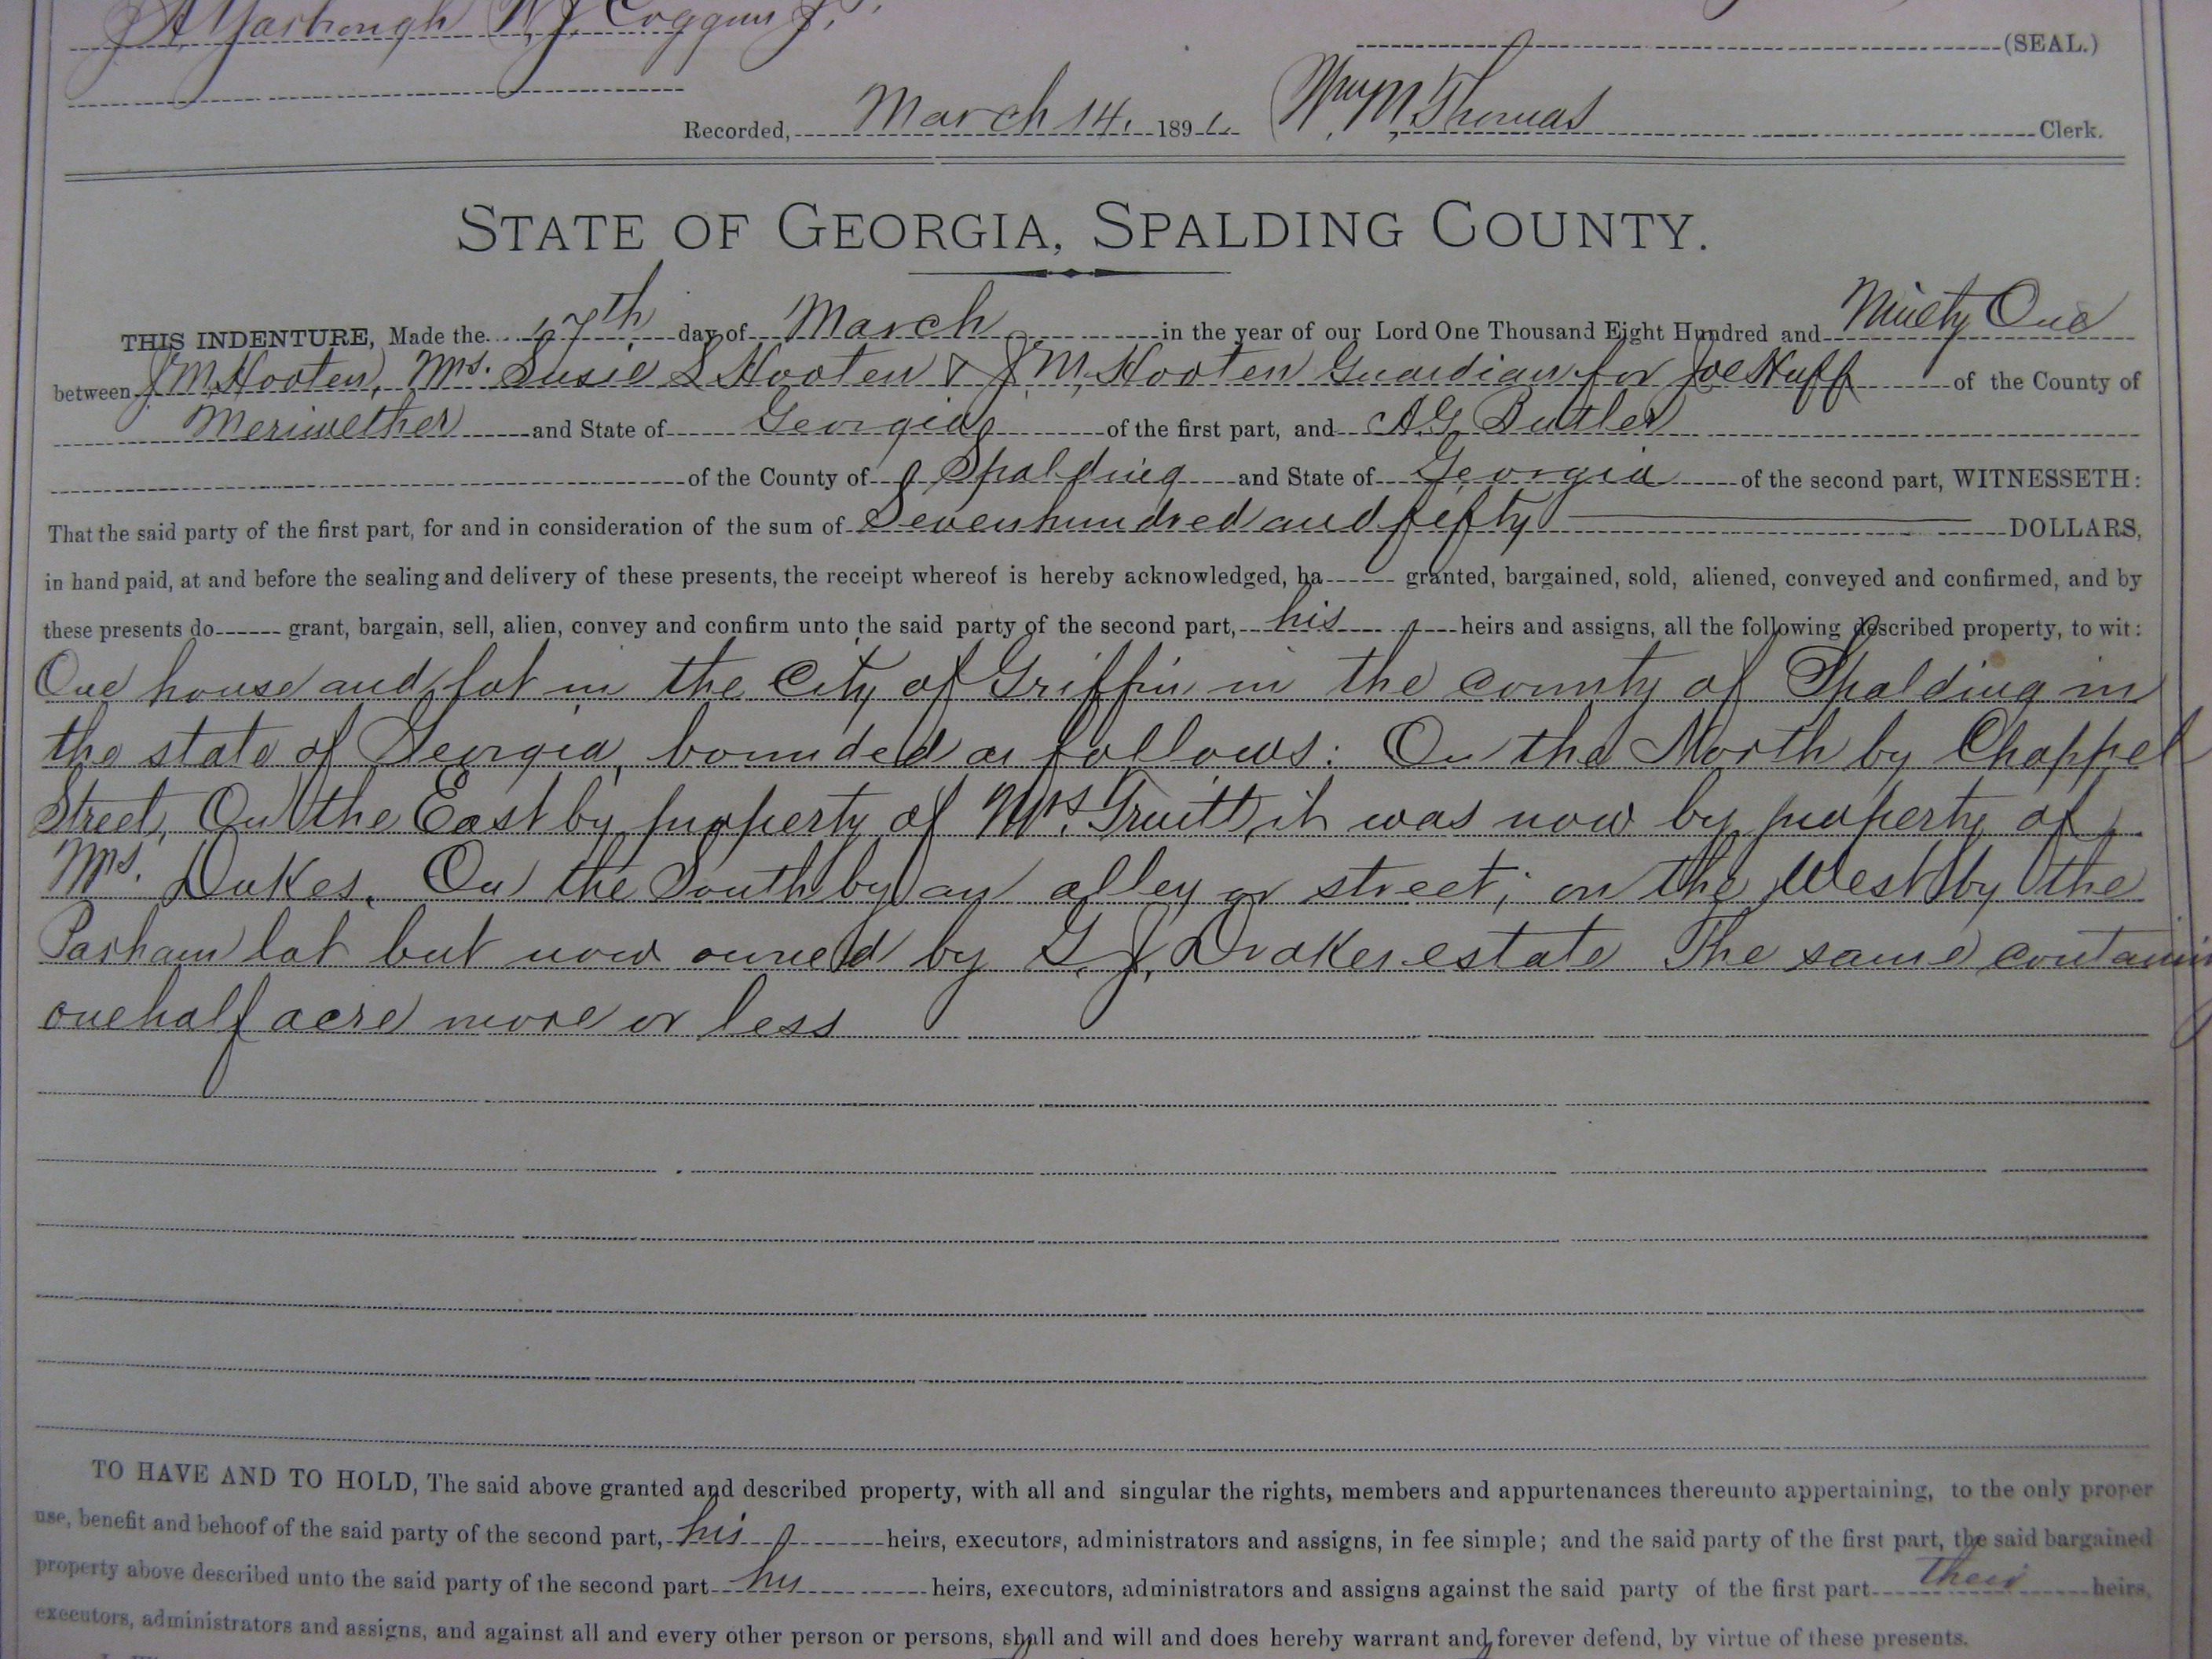 J A Yarbrough W. J. Coggin J.P.
(SEAL.)
Recorded, March 14, 1891. Wm. M. Thomas Clerk.
STATE OF GEORGIA, SPALDING COUNTY.
THIS INDENTURE, Made the 7th day of March in the year of our Lord One Thousand Eight Hundred and Ninety One
between J M Hooten, Mrs. Susie S Hooten & J M, Hooten Guardian for Joe Huff of the County of
Meriwether and State of Georgia of the first part, and A G Butler
of the County of Spalding and State of Georgia of the second part, WITNESSETH:
That the said party of the first part, for and in consideration of the sum of Seven hundred and fifty DOLLARS,
in hand paid, at and before the sealing and delivery of these presents, the receipt whereof is hereby acknowledged, ha granted, bargained, sold, aliened, conveyed and confirmed, and by
these presents do grant, bargain, sell, alien, convey and confirm unto the said party of the second part, his heirs and assigns, all the following described property, to wit:
One house and lot in the City of Griffin in the county of Spalding in
the state of Georgia, bounded as follows: On the North by Chappel
Street, On the East by property of Mrs. Truitt, it was now by property of
Mrs. Dukes. On the South by an alley or street; on the West by the
Parham lot but now owned by G. J. Drakes estate The same containing
one half acre more or less
TO HAVE AND TO HOLD, The said above granted and described property, with all and singular the rights, members and appurtenances thereunto appertaining, to the only proper
use, benefit and behoof of the said party of the second part, his heirs, executors, administrators and assigns, in fee simple; and the said party of the first part, the said bargained
property above described unto the said party of the second part his heirs, executors, administrators and assigns against the said party of the first part their heirs,
executors, administrators and assigns, and against all and every other person or persons, shall and will and does hereby warrant and forever defend, by virtue of these presents.